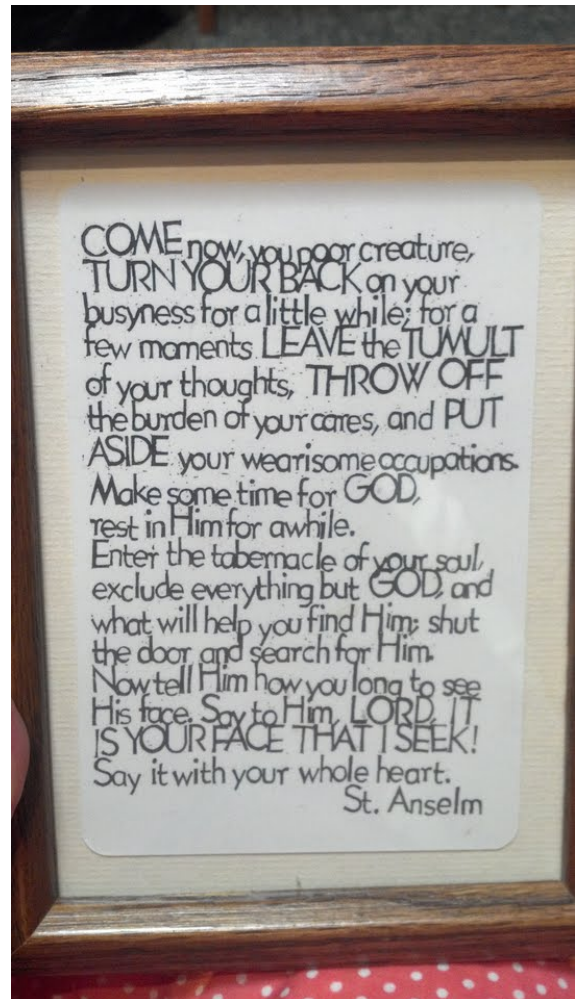 COME now, you poor creature,
TURN YOUR BACK on your
busyness for a little while; for a
few moments LEAVE the TUMULT
of your thoughts, THROW OFF
the burden of your cares, and PUT
ASIDE your wearisome occupations.
Make some time for GOD,
rest in Him for awhile.
Enter the tabernacle of your soul,
exclude everything but GOD, and
what will help you find Him; shut
the door and search for Him.
Now tell Him how you long to see
His face. Say to Him, LORD, IT
IS YOUR FACE THAT I SEEK!
Say it with your whole heart.
St. Anselm